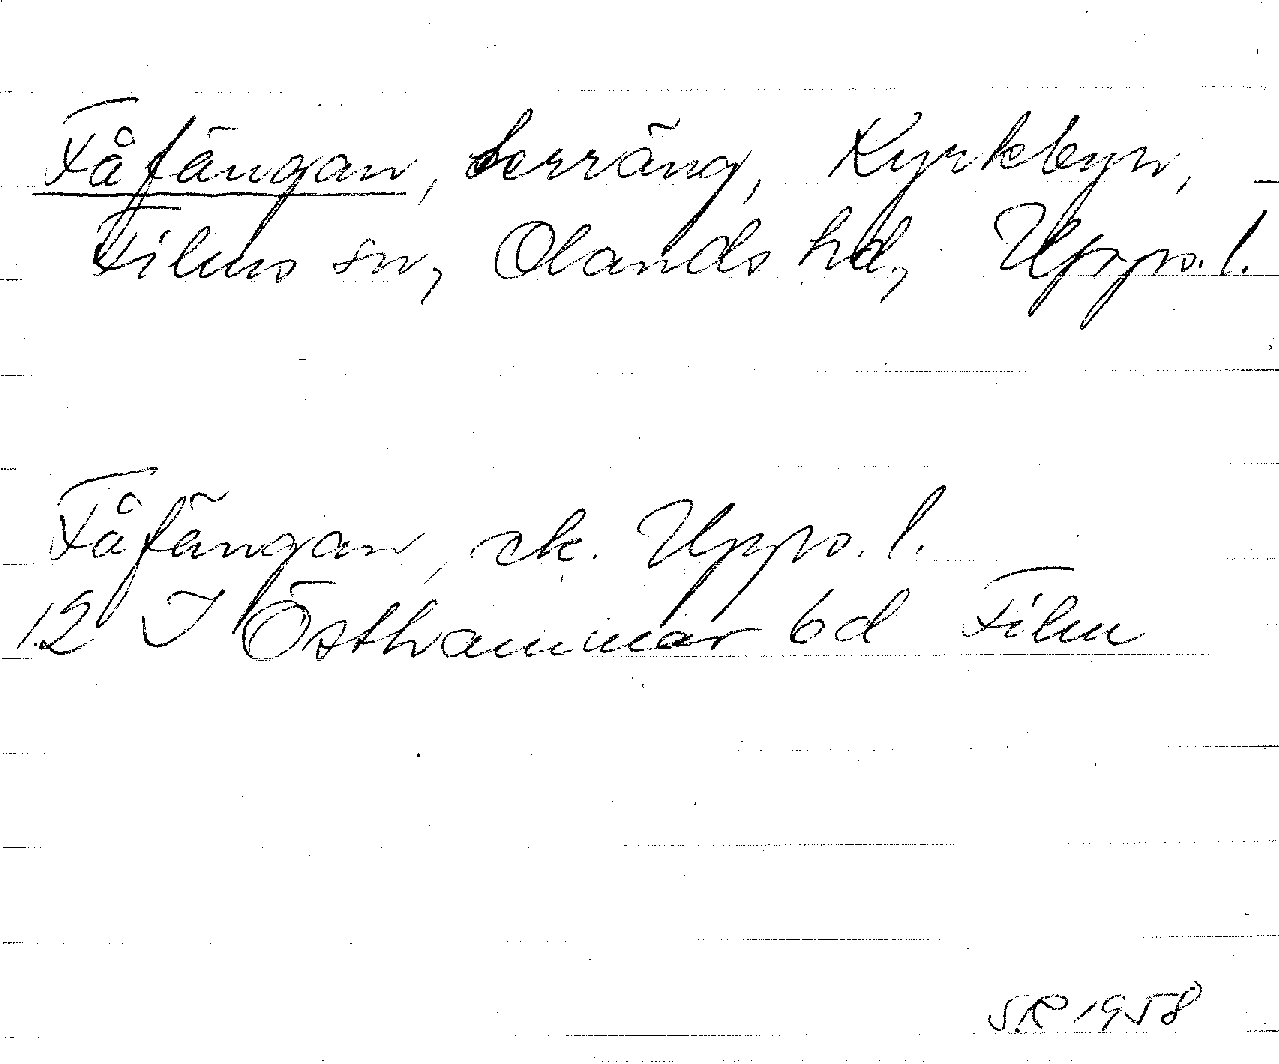 Fåfängan, terräng, Kyrkbyn,
Films sn, Olands hd, Upps. l.
Fåfängan, ek. Upps. l.
12 I Östhammar 6d Film
S.R 1958